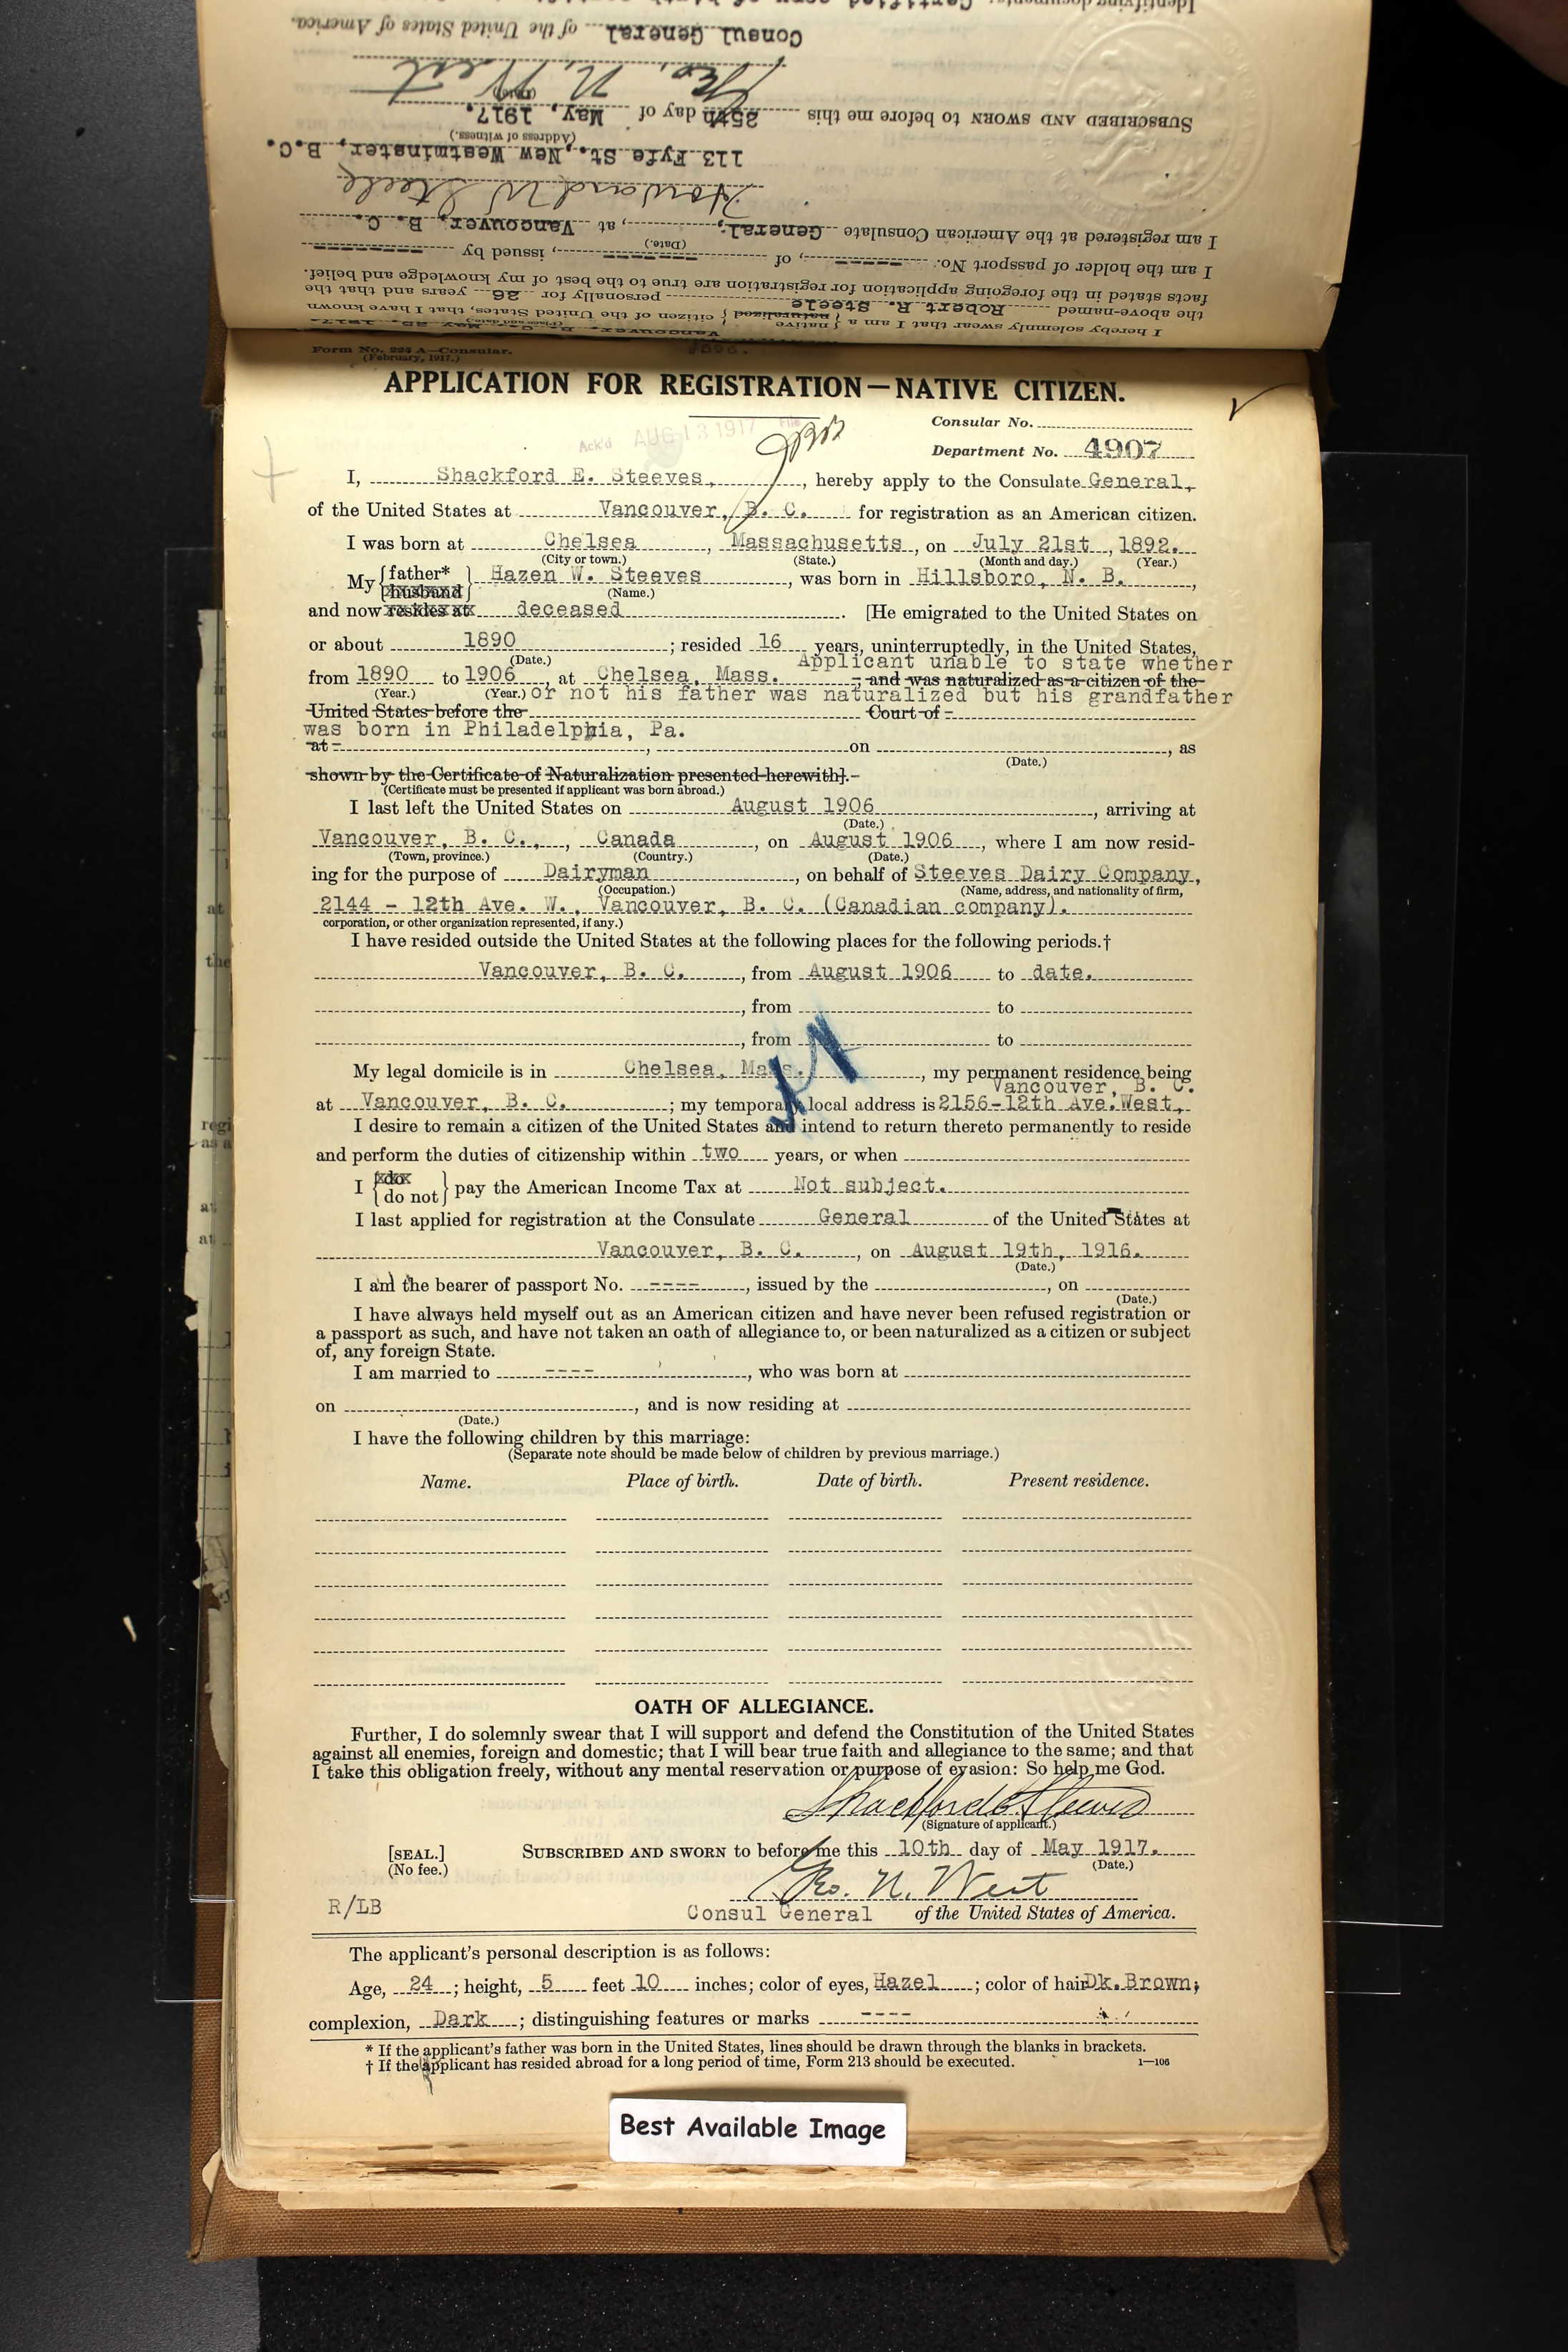 Identifying documents: Certified copy of birth
Consul General of the United States of America.
Geo. N. West
SUBSCRIBED AND SWORN to before me this 25th day of May, 1917.
(Date.)
(Address of witness.)
113 Fyfe St., New Westminster, B.C.
Howard W Steele
I am registered at the American Consulate General, at Vancouver, B. C.
(Date.)
I am the holder of passport No. -----, of ------, issued by ------
facts stated in the foregoing application for registration are true to the best of my knowledge and belief.
the above-named Robert R. Steele personally for 26 years and that the
I hereby solemnly swear that I am a { native naturalized } citizen of the United States, that I have known
Form No. 225 A—Consular.
(February, 1917.)
APPLICATION FOR REGISTRATION—NATIVE CITIZEN.
Consular No.
Ack'd AUG 13 1917 File
Department No. 4907
I, Shackford E. Steeves, hereby apply to the Consulate General,
of the United States at Vancouver, B. C. for registration as an American citizen.
I was born at Chelsea, Massachusetts, on July 21st, 1892.
(City or town.) (State.) (Month and day.) (Year.)
My { father* husband } Hazen W. Steeves, was born in Hillsboro, N. B.,
(Name.)
and now resides at deceased. [He emigrated to the United States on
or about 1890; resided 16 years, uninterruptedly, in the United States,
(Date.) Applicant unable to state whether
from 1890 to 1906, at Chelsea, Mass.; and was naturalized as a citizen of the
(Year.) (Year.) or not his father was naturalized but his grandfather
United States before the Court of
was born in Philadelphia, Pa.
at , on , as
(Date.)
shown by the Certificate of Naturalization presented herewith].
(Certificate must be presented if applicant was born abroad.)
I last left the United States on August 1906, arriving at
(Date.)
Vancouver, B. C., Canada, on August 1906, where I am now resid-
(Town, province.) (Country.) (Date.)
ing for the purpose of Dairyman, on behalf of Steeves Dairy Company,
(Occupation.) (Name, address, and nationality of firm,
2144 - 12th Ave. W., Vancouver, B. C. (Canadian company).
corporation, or other organization represented, if any.)
I have resided outside the United States at the following places for the following periods.†
Vancouver, B. C., from August 1906 to date.
, from to
, from to
My legal domicile is in Chelsea, Mass., my permanent residence being
Vancouver, B. C.
at Vancouver, B. C.; my temporary local address is 2156-12th Ave. West,
I desire to remain a citizen of the United States and intend to return thereto permanently to reside
and perform the duties of citizenship within two years, or when
I { do do not } pay the American Income Tax at Not subject.
I last applied for registration at the Consulate General of the United States at
Vancouver, B. C., on August 19th, 1916.
(Date.)
I am the bearer of passport No. ----, issued by the , on
(Date.)
I have always held myself out as an American citizen and have never been refused registration or
a passport as such, and have not taken an oath of allegiance to, or been naturalized as a citizen or subject
of, any foreign State.
I am married to ----, who was born at
on , and is now residing at
(Date.)
I have the following children by this marriage:
(Separate note should be made below of children by previous marriage.)
Name. Place of birth. Date of birth. Present residence.
OATH OF ALLEGIANCE.
Further, I do solemnly swear that I will support and defend the Constitution of the United States
against all enemies, foreign and domestic; that I will bear true faith and allegiance to the same; and that
I take this obligation freely, without any mental reservation or purpose of evasion: So help me God.
Shackford E. Steeves
(Signature of applicant.)
[SEAL.] SUBSCRIBED AND SWORN to before me this 10th day of May 1917.
(No fee.) (Date.)
Geo. N. West
R/LB Consul General of the United States of America.
The applicant's personal description is as follows:
Age, 24; height, 5 feet 10 inches; color of eyes, Hazel; color of hair Dk. Brown;
complexion, Dark; distinguishing features or marks ----
* If the applicant's father was born in the United States, lines should be drawn through the blanks in brackets.
† If the applicant has resided abroad for a long period of time, Form 213 should be executed. 1—106
Best Available Image